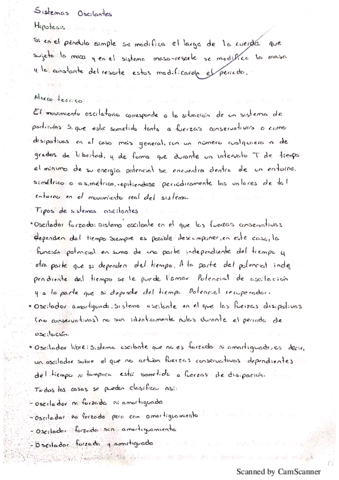 Sistemas Oscilantes
Hipotesis
Si en el péndulo simple se modifica el largo de la cuerda que
sujeta la masa y en el sistema masa-resorte se modifica la masa
y la constante del resorte estas modificaran el periodo.
Marco teorico
El movimiento oscilatorio corresponde a la situación de un sistema de
particulas S, que este sometido tanto a fuerzas conservativas o como
disipativas en el caso más general, con un número cualquiera n de
grados de libertad, y de forma que durante un intervalo T de tiempo
el mínimo de su energía potencial se encuentra dentro de un entorno,
simétrico o asimétrico, repitiendose periódicamente los valores de tal
entorno en el movimiento real del sistema.
Tipos de sistemas oscilantes
• Oscilador forzado: Sistema oscilante en el que las fuerzas conservativas
dependen del tiempo siempre es posible descomponer, en este caso, la
función potencial en suma de una parte independiente del tiempo y
otra parte que si dependen del tiempo. A la parte del potencial inde
pendiente del tiempo se le puede llamar Potencial de oscilación
y a la parte que si depende del tiempo Potencial recuperador.
• Oscilador amortiguado: Sistema oscilante en el que las fuerzas disipativas
(no conservativas) no son idénticamente nulas durante el periodo de
oscilación.
• Oscilador libre: Sistema oscilante que no es forzado ni amortiguado, es decir,
un oscilador sobre el que no actúan fuerzas conservativas dependientes
del tiempo ni tampoco está sometido a fuerzas de disipación.
Todos los casos se pueden clasificar así:
- Oscilador ni forzado ni amortiguado
- Oscilador no forzado pero con amortiguamiento
- Oscilador forzado sin amortiguamiento
- Oscilador forzado y amortiguado
Scanned by CamScanner